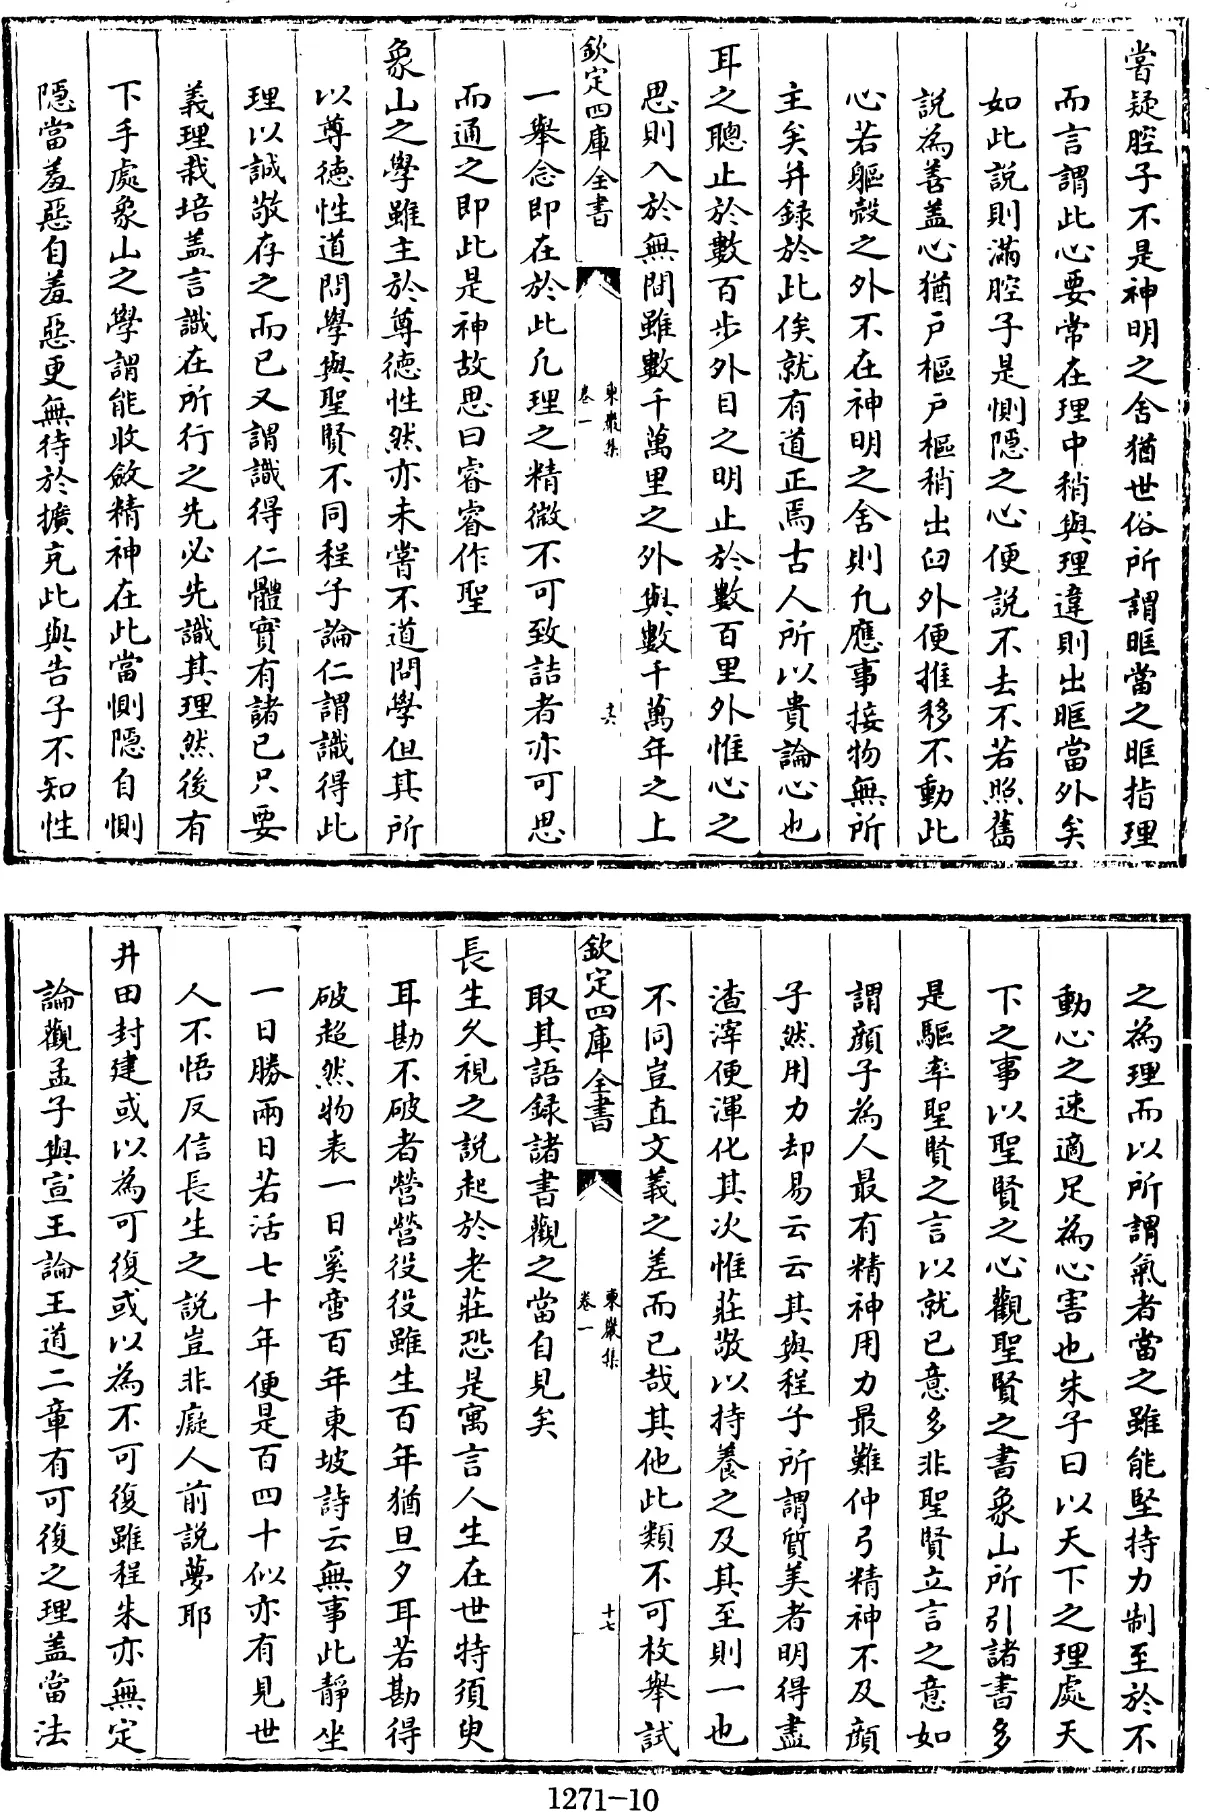 嘗疑腔子不是神明之舍猶世俗所謂眶當之眶指理
而言謂此心要常在理中稍與理違則出眶當外矣
如此説則滿腔子是惻隠之心便説不去不若照舊
説為善盖心猶户樞户樞稍出臼外便推移不動此
心若軀殻之外不在神明之舍則凢應事接物無所
主矣并録於此俟就有道正焉古人所以貴論心也
耳之聰止於數百步外目之明止於數百里外惟心之
思則入於無間雖數千萬里之外與數千萬年之上
欽定四庫全書
東巖集
卷一
十六
一舉念即在於此凢理之精微不可致詰者亦可思
而通之即此是神故思曰睿睿作聖
象山之學雖主於尊德性然亦未嘗不道問學但其所
以尊德性道問學與聖賢不同程子論仁謂識得此
理以誠敬存之而已又謂識得仁體實有諸已只要
義理栽培盖言識在所行之先必先識其理然後有
下手處象山之學謂能收斂精神在此當惻隠自惻
隠當羞惡自羞惡更無待於擴充此與告子不知性
之為理而以所謂氣者當之雖能堅持力制至於不
動心之速適足為心害也朱子曰以天下之理處天
下之事以聖賢之心觀聖賢之書象山所引諸書多
是驅率聖賢之言以就已意多非聖賢立言之意如
謂顔子為人最有精神用力最難仲弓精神不及顔
子然用力却易云云其與程子所謂質美者明得盡
渣滓便渾化其次惟莊敬以持養之及其至則一也
不同豈直文義之差而已哉其他此類不可枚舉試
欽定四庫全書
東巖集
卷一
十七
取其語録諸書觀之當自見矣
長生久視之説起於老莊恐是寓言人生在世特須臾
耳勘不破者營營役役雖生百年猶旦夕耳若勘得
破超然物表一日奚啻百年東坡詩云無事此靜坐
一日勝兩日若活七十年便是百四十似亦有見世
人不悟反信長生之説豈非癡人前説夢耶
井田封建或以為可復或以為不可復雖程朱亦無定
論觀孟子與宣王論王道二章有可復之理盖當法
1271-10